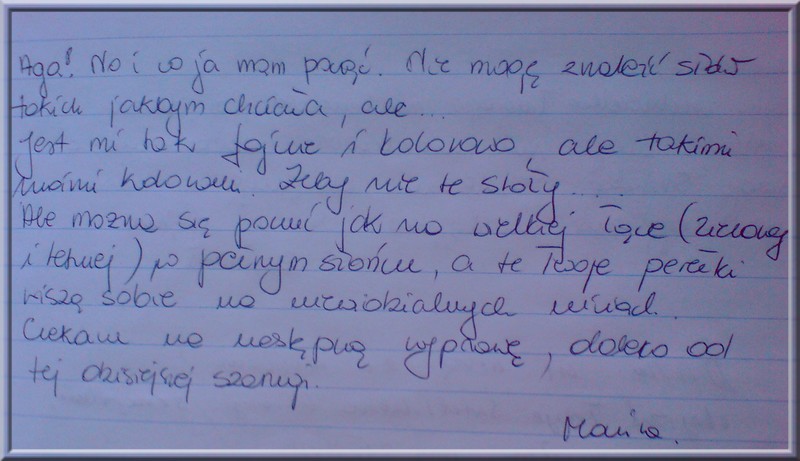 Aga! No i co ja mam począć. Nie mogę znaleźć słów
takich jakbym chciała, ale...
Jest mi tak fajnie i kolorowo, ale takimi
moimi kolorami. Żeby nie te stoły...
Ale można się poczuć jak na wielkiej łące (zielonej
i letniej) w pełnym słońcu, a te Twoje perełki
wiszą sobie na niewidzialnych niciach.
Czekam na następną wyprawę, daleko od
tej dzisiejszej szarugi.